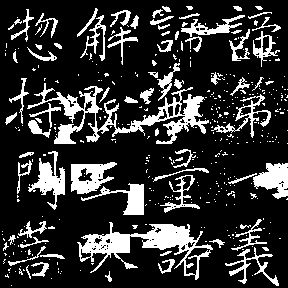 諦第一義
諦無量諸
解脱三昧
惣持門菩